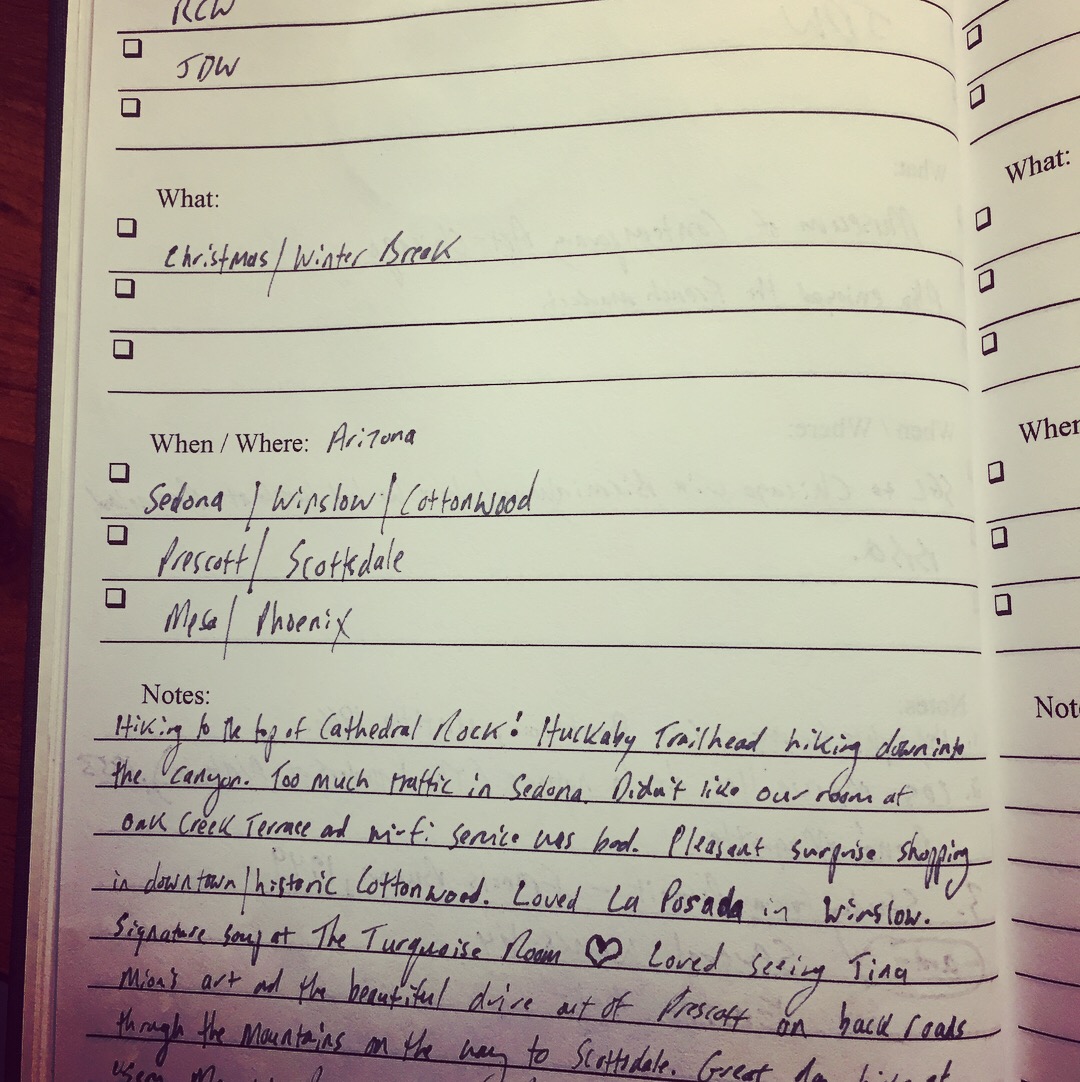 RCW
JDW
What:
Christmas/Winter Break
When / Where: Arizona
Sedona / Winslow / Cottonwood
Prescott / Scottsdale
Mesa / Phoenix
Notes:
Hiking to the top of Cathedral Rock! Huckaby Trailhead hiking down into
the canyon. Too much traffic in Sedona. Didn't like our room at
Oak Creek Terrace and wi-fi service was bad. Pleasant surprise shopping
in downtown/historic Cottonwood. Loved La Posada in Winslow.
Signature soup at The Turquoise Room ♡ Loved seeing Tina
Mion's art and the beautiful drive out of Prescott on back roads
through the mountains on the way to Scottsdale. Great day hike at
What:
When
Note